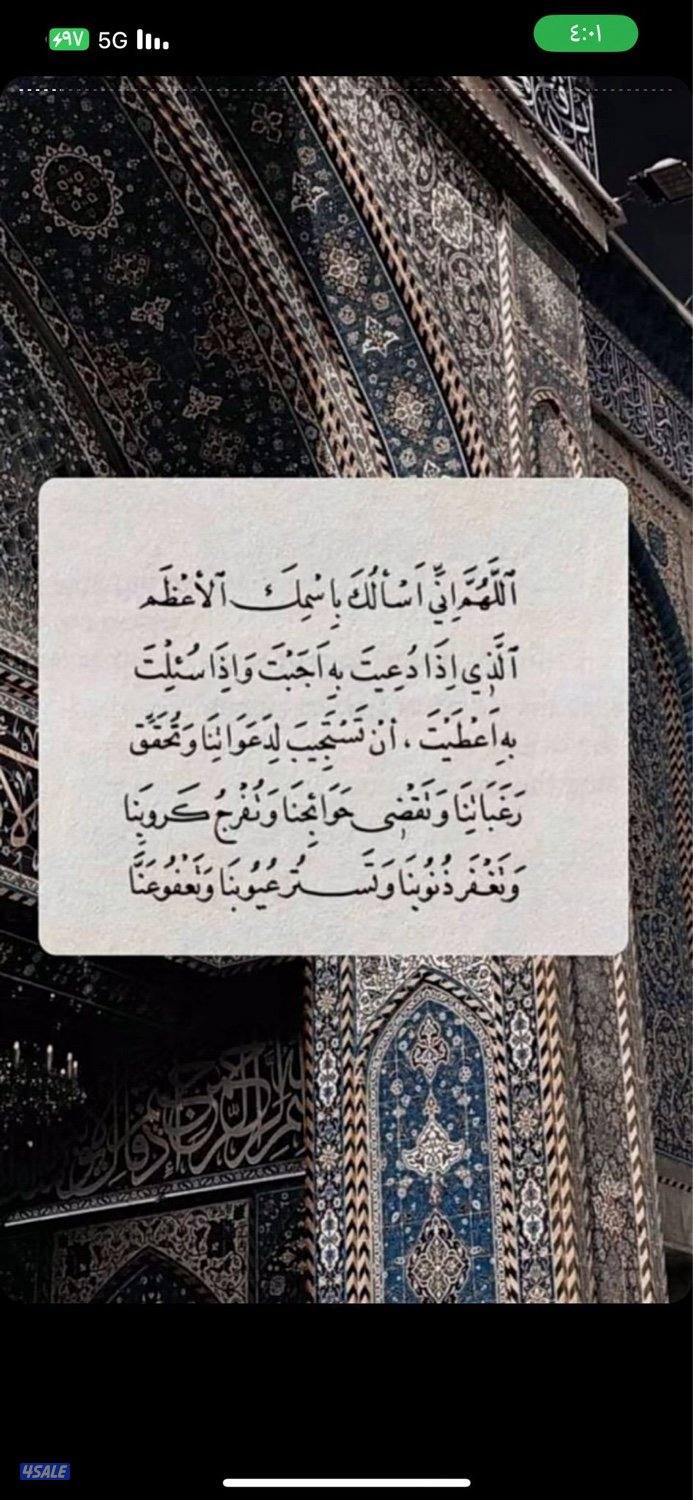 ٩٧
5G
٤:٠١
ٱللَّهُمَّ اِنِّي اَسْأَلُكَ بِاسْمِكَ ٱلأعْظَم
ٱلَّذِي اِذَا دُعِيتَ بِهِ اَجَبْتَ وَاِذَا سُئِلْتَ
بِهِ اَعْطَيْتَ ، أنْ تَسْتَجِيبَ لِدَعَوَاتِنَا وَتُحَقِّق
رَغَبَاتِنَا وَتَقْضِي حَوَائِجنَا وَتُفَرِجُ كَروبِنا
وَتَغْفَر ذُنُوبُنَا وَتَستُر عيُوبُنَا وَتَعفُو عَنَّا
4SALE